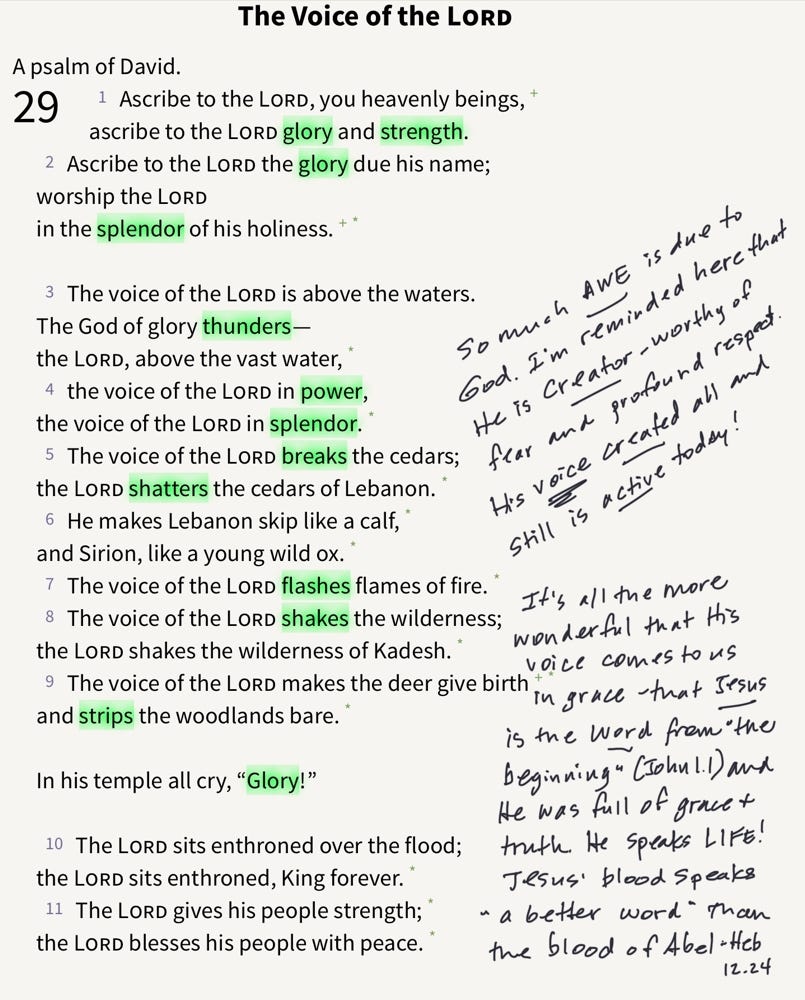 The Voice of the LORD
A psalm of David.
29 1 Ascribe to the LORD, you heavenly beings, +
ascribe to the LORD glory and strength.
2 Ascribe to the LORD the glory due his name;
worship the LORD
in the splendor of his holiness. + *
3 The voice of the LORD is above the waters.
The God of glory thunders—
the LORD, above the vast water, *
4 the voice of the LORD in power,
the voice of the LORD in splendor. *
5 The voice of the LORD breaks the cedars;
the LORD shatters the cedars of Lebanon. *
6 He makes Lebanon skip like a calf, *
and Sirion, like a young wild ox. *
7 The voice of the LORD flashes flames of fire. *
8 The voice of the LORD shakes the wilderness;
the LORD shakes the wilderness of Kadesh. *
9 The voice of the LORD makes the deer give birth + *
and strips the woodlands bare. *
In his temple all cry, “Glory!”
10 The LORD sits enthroned over the flood;
the LORD sits enthroned, King forever. *
11 The LORD gives his people strength; *
the LORD blesses his people with peace. *
So much AWE is due to
God. I'm reminded here that
He is Creator - worthy of
fear and profound respect.
His voice created all and
still is active today!
It's all the more
wonderful that His
voice comes to us
in grace - that Jesus
is the Word from "the
beginning" (John 1.1) and
He was full of grace +
truth. He speaks LIFE!
Jesus' blood speaks
"a better word" than
the blood of Abel - Heb
12.24